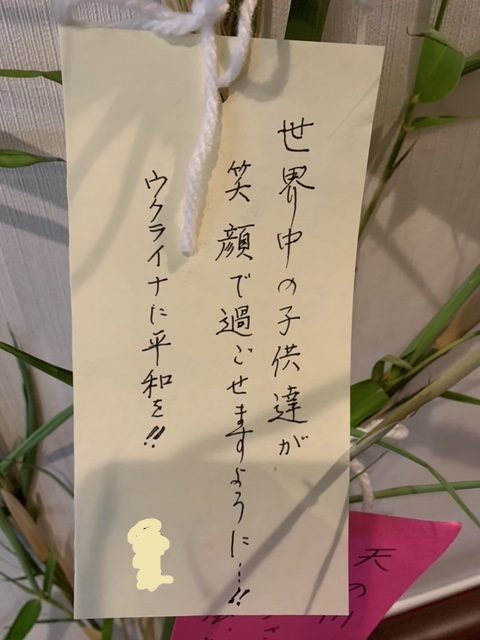 世界中の子供達が
笑顔で過ごせますように…!!
ウクライナに平和を!!
天の川